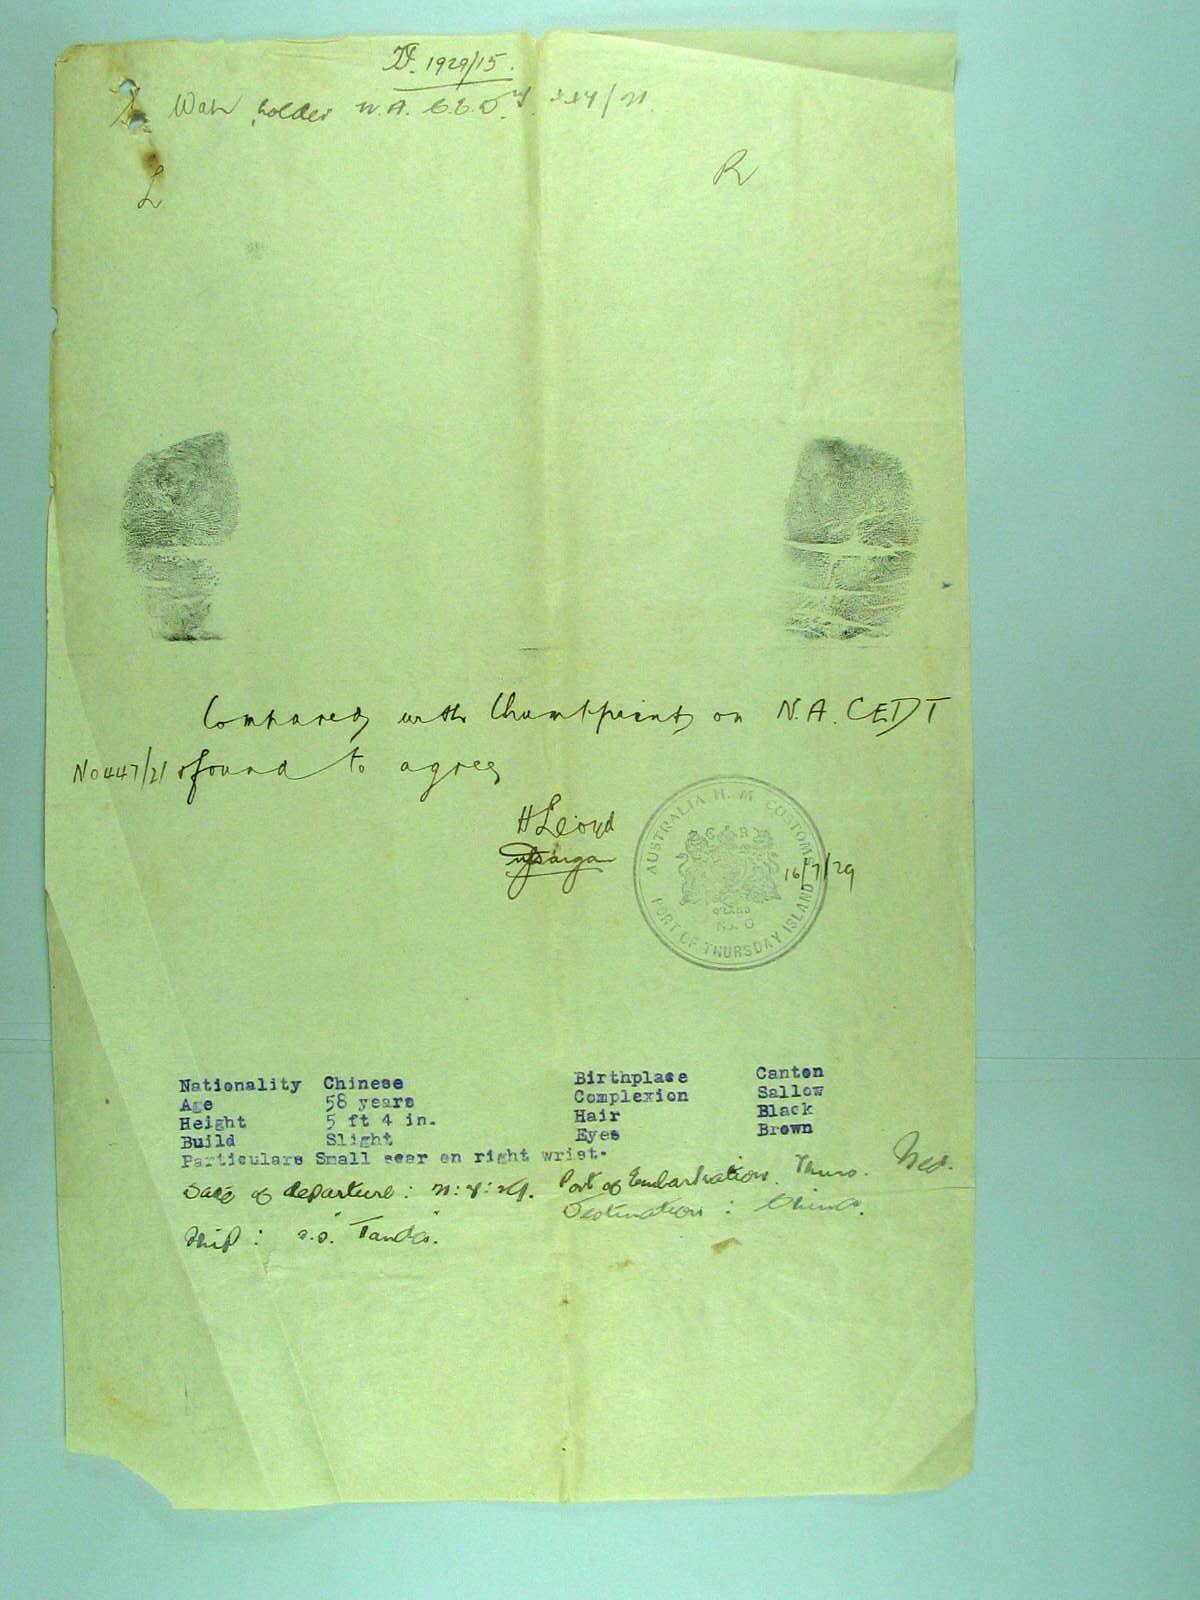 1929/15.
Wah holder N.A. C.E.D.T. 447/21.
L
R
Compared with thumbprints on N.A. CEDT
No 447/21 & found to agree
H Lloyd
AUSTRALIA H. M. CUSTOMS
G R
Q'LAND
No. 0
PORT OF THURSDAY ISLAND
16/7/29
Nationality Chinese Birthplace Canton
Age 58 years Complexion Sallow
Height 5 ft 4 in. Hair Black
Build Slight Eyes Brown
Particulars Small scar on right wrist.
Date of departure: Port of Embarkation. Thurs. Isld.
Destination: China.
Ship: s.s. "Tanda".